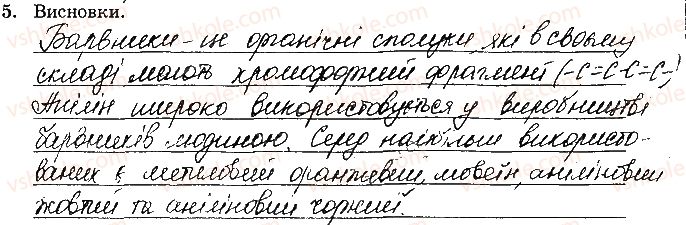 5. Висновки.
Барвники - це органічні сполуки, які в своєму
складі мають хромофорний фрагмент (-C=C-C=C-)
Анілін широко використовується у виробництві
барвників людиною. Серед найбільш використо-
ваних є метиловий оранжевий, мовеїн, аніліновий
жовтий та аніліновий чорний.